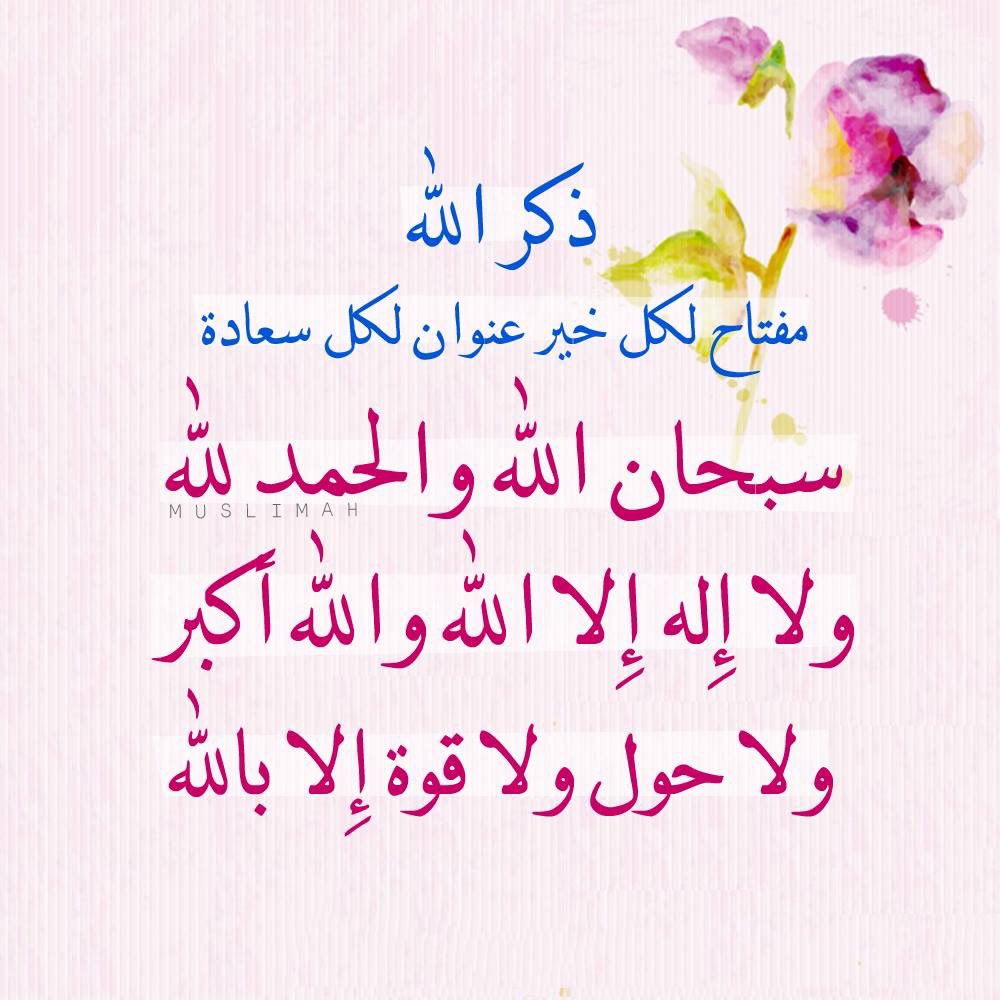 ذكر الله
مفتاح لكل خير عنوان لكل سعادة
سبحان الله والحمد لله
MUSLIMAH
ولا إله إلا الله والله أكبر
ولا حول ولا قوة إلا بالله